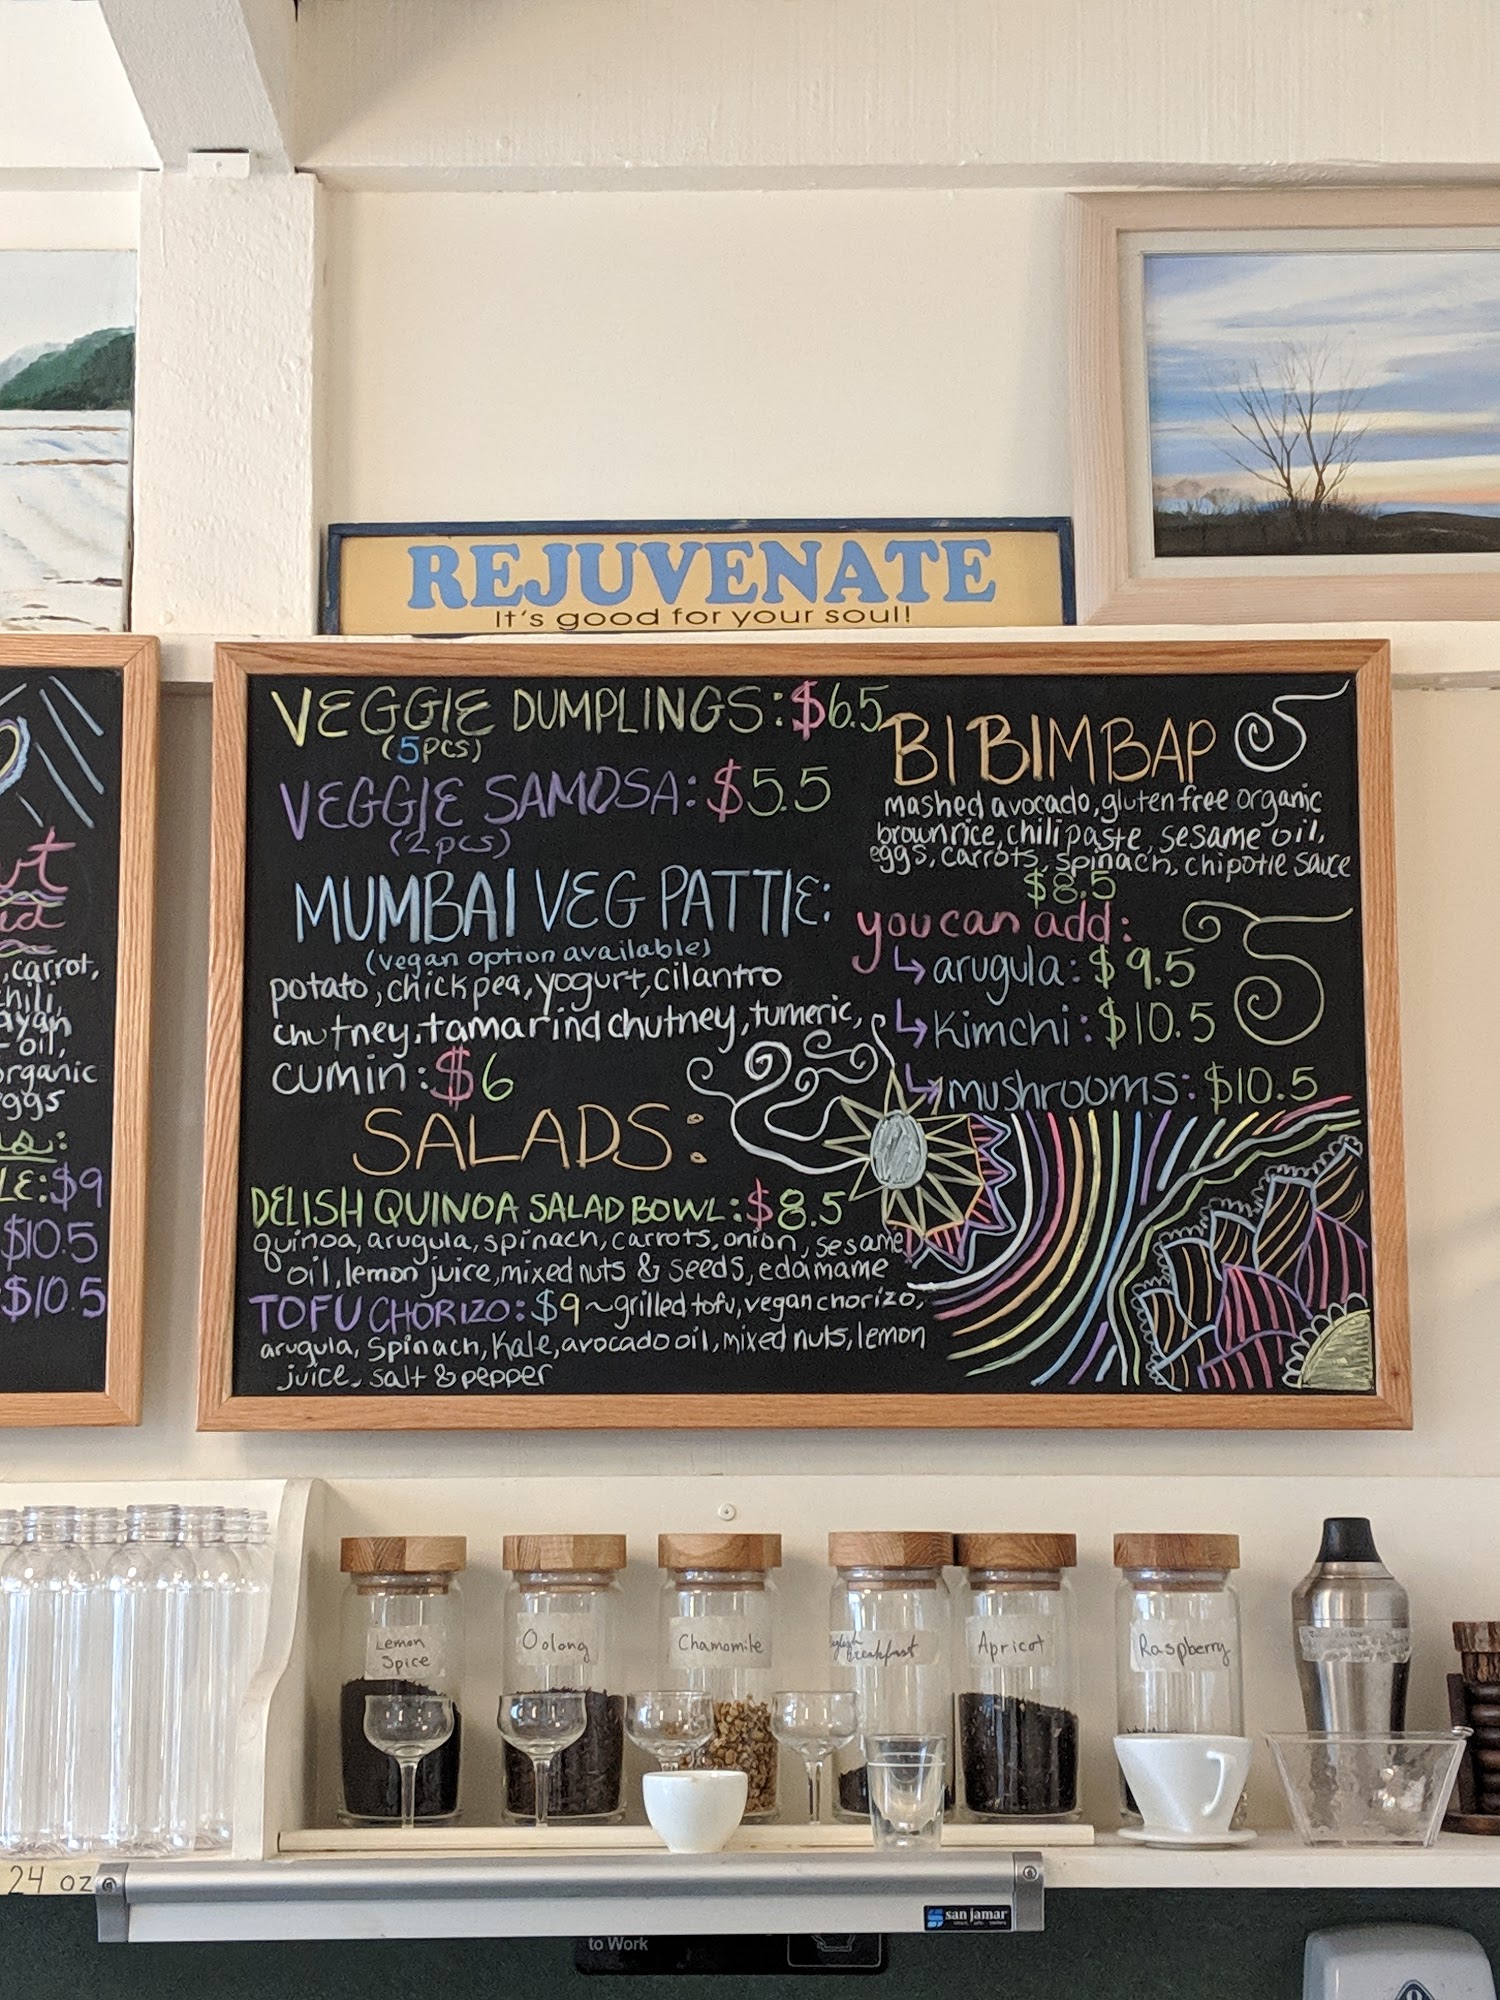 REJUVENATE
It's good for your soul!
VEGGIE DUMPLINGS: $6.5
(5pcs)
VEGGIE SAMOSA: $5.5
(2pcs)
MUMBAI VEG PATTIE:
(vegan option available)
potato, chickpea, yogurt, cilantro
chutney, tamarind chutney, tumeric,
cumin: $6
SALADS:
DELISH QUINOA SALAD BOWL: $8.5
quinoa, arugula, spinach, carrots, onion, sesame
oil, lemon juice, mixed nuts & seeds, edamame
TOFU CHORIZO: $9 ~ grilled tofu, vegan chorizo,
arugula, spinach, kale, avocado oil, mixed nuts, lemon
juice, salt & pepper
BIBIMBAP
mashed avocado, gluten free organic
brown rice, chili paste, sesame oil,
eggs, carrots, spinach, chipotle sauce
$8.5
you can add:
↳ arugula: $9.5
↳ Kimchi: $10.5
↳ mushrooms: $10.5
, carrot,
oil,
organic
eggs
LE: $9
$10.5
$10.5
Lemon
Spice
Oolong
Chamomile
English
Breakfast
Apricot
Raspberry
24 oz
san jamar
to Work